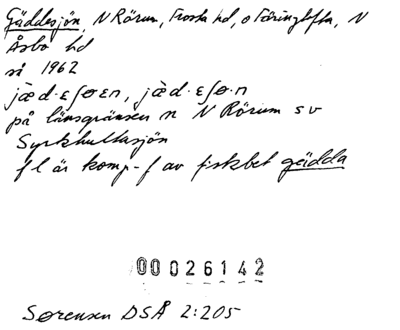 Gäddesjön, N Rörum, Frosta hd, o Färingtofta, N
Åsbo hd
sj 1962
jæ̀d·ɛʃøɛn, jæ̀d·ɛʃø·n
på länsgränsen n N Rörum sv
Syrkhultasjön
f l är komp-f av fiskbet gädda
00026142
Sørensen DSÅ 2:205